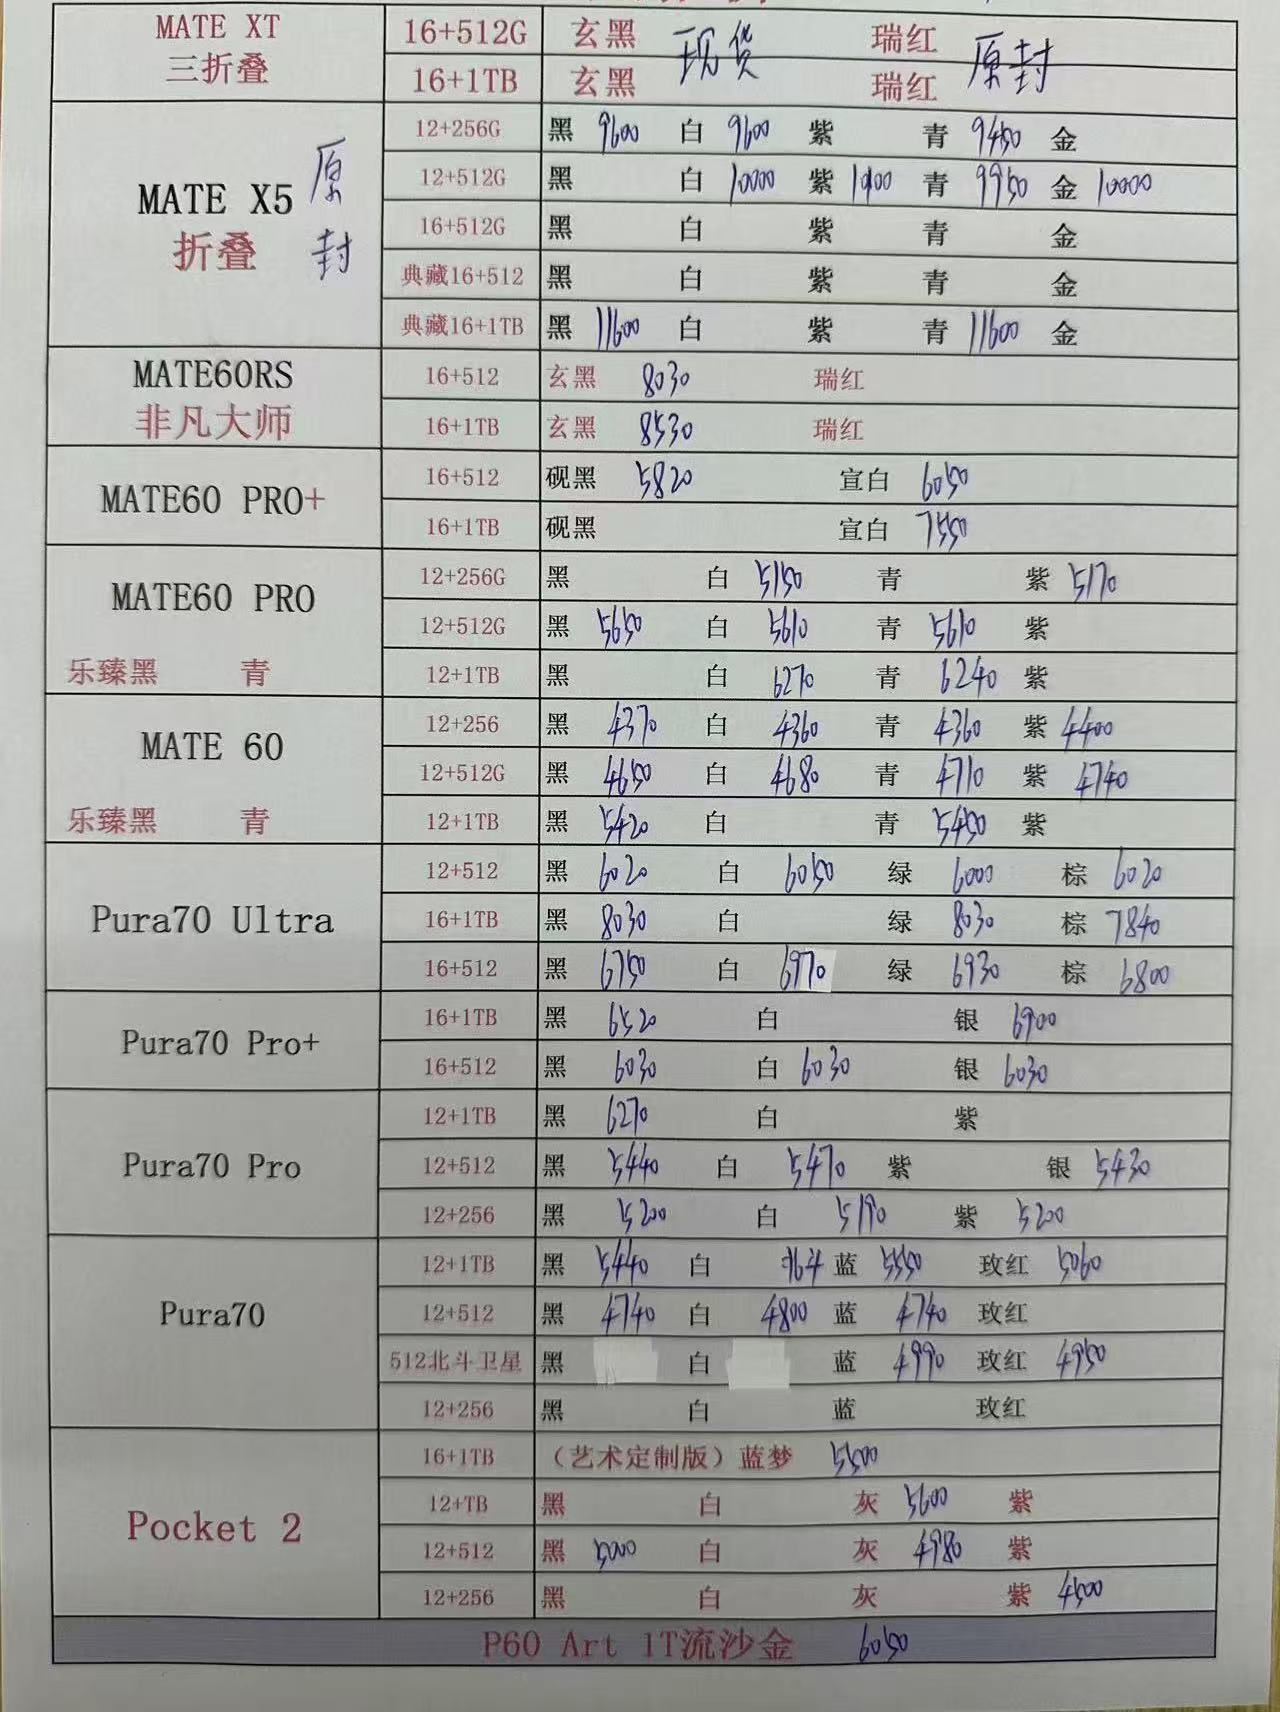 MATE XT 16+512G 玄黑 现货 瑞红 原封
三折叠 16+1TB 玄黑 瑞红
12+256G 黑 9600 白 9600 紫 青 9450 金
MATE X5 原封 12+512G 黑 白 10000 紫 青 9950 金 10000
折叠 16+512G 黑 白 紫 青 金
典藏16+512 黑 白 紫 青 金
典藏16+1TB 黑 11600 白 紫 青 11600 金
MATE60RS 16+512 玄黑 8030 瑞红
非凡大师 16+1TB 玄黑 8530 瑞红
MATE60 PRO+ 16+512 砚黑 5820 宣白 6050
16+1TB 砚黑 宣白 7550
MATE60 PRO 12+256G 黑 白 5150 青 紫 5170
12+512G 黑 5650 白 5610 青 5610 紫
乐臻黑 青 12+1TB 黑 白 6270 青 6240 紫
MATE 60 12+256 黑 4370 白 4360 青 4360 紫 4400
12+512G 黑 4650 白 4680 青 4710 紫 4740
乐臻黑 青 12+1TB 黑 5420 白 青 5450 紫
12+512 黑 6020 白 6050 绿 6000 棕 6020
Pura70 Ultra 16+1TB 黑 8030 白 绿 8030 棕 7840
16+512 黑 6750 白 6970 绿 6930 棕 6800
Pura70 Pro+ 16+1TB 黑 6520 白 银 6900
16+512 黑 6030 白 6030 银 6030
12+1TB 黑 6270 白 紫
Pura70 Pro 12+512 黑 5440 白 5470 紫 银 5430
12+256 黑 5200 白 5190 紫 5200
12+1TB 黑 5440 白 北斗 蓝 5550 玫红 5060
Pura70 12+512 黑 4740 白 4800 蓝 4740 玫红
512北斗卫星 黑 白 蓝 4990 玫红 4950
12+256 黑 白 蓝 玫红
16+1TB （艺术定制版）蓝梦 5500
Pocket 2 12+TB 黑 白 灰 5600 紫
12+512 黑 5000 白 灰 4980 紫
12+256 黑 白 灰 紫 4500
P60 Art 1T流沙金 6050